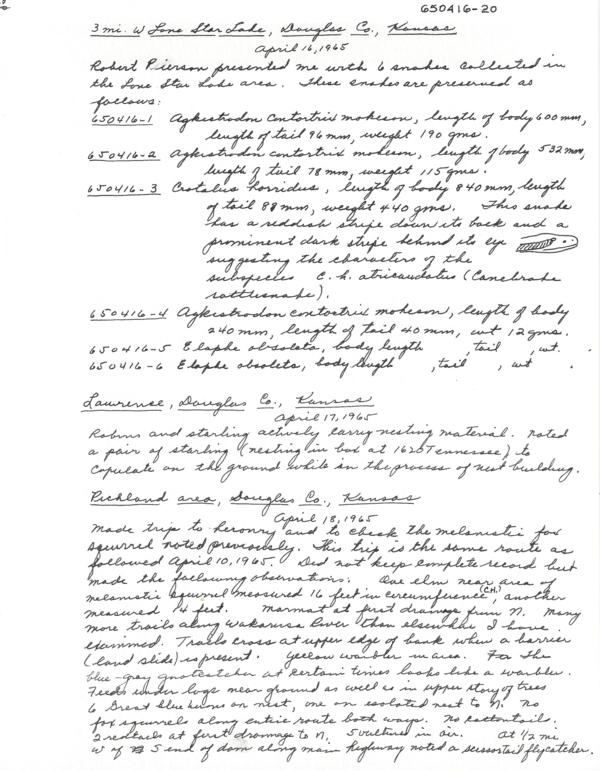 650416-20
3 mi. W Lone Star Lake, Douglas Co., Kansas
April 16, 1965
Robert Pierson presented me with 6 snakes collected in
the Lone Star Lake area. These snakes are preserved as
follows:
650416-1 Agkistrodon contortrix mokeson, length of body 600 mm,
length of tail 96 mm, weight 190 gms.
650416-2 Agkistrodon contortrix mokeson, length of body 532 mm,
length of tail 78 mm, weight 115 gms.
650416-3 Crotalus horridus, length of body 840 mm, length
of tail 88 mm, weight 440 gms. This snake
has a reddish stripe down its back and a
prominent dark stripe behind its eye
suggesting the characters of the
subspecies C. h. atricaudatus (Canebrake
rattlesnake).
650416-4 Agkistrodon contortrix mokeson, length of body
240 mm, length of tail 40 mm, wt 12 gms.
650416-5 Elaphe obsoleta, body length , tail , wt.
650416-6 Elaphe obsoleta, body length , tail , wt .
Lawrence, Douglas Co., Kansas
April 17, 1965
Robins and starling actively carry nesting material. Noted
a pair of starling (nesting in box at 1620 Tennessee) to
copulate on the ground while in the process of nest building.
Richland area, Douglas Co., Kansas
April 18, 1965
Made trip to heronry and to check the melanistic fox
squirrel noted previously. This trip is the same route as
followed April 10, 1965. Did not keep complete record but
made the following observations: One elm near area of
melanistic squirrel measured 16 feet in circumference (C.H.), another
measured 14 feet. Marmot at first drainage from N. Many
more trails along Wakarusa River than elsewhere I have
examined. Trails cross at upper edge of bank when a barrier
(land slide) is present. Yellow warbler in area. The
blue-gray gnatcatcher at certain times looks like a warbler.
Feeds under logs near ground as well as in upper story of trees
6 Great blue herons on nest, one on isolated nest to N. No
fox squirrels along entire route both ways. No cottontails.
2 redtails at first drainage to N, 5 vultures in air. At 1/2 mi
W of S end of dam along main highway noted a scissortail flycatcher.